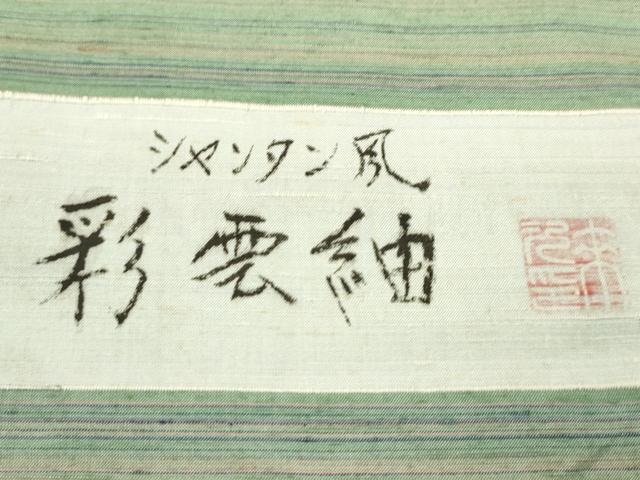 シャンタン風
彩雲紬